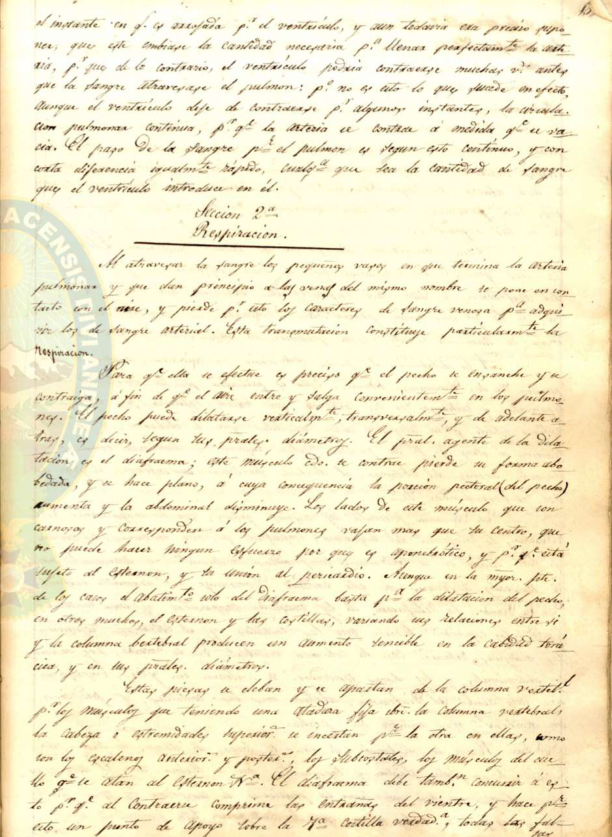 el instante en q.e es arrojada p.r el ventrículo, y aun todavia era preciso supo-
ner, que este embiase la cantidad necesaria p.a llenar perfectam.te la arte-
ria, p.r que de lo contrario, el ventrículo podria contraerse muchas v.s antes
que la sangre atravesase el pulmon: p.o no es esto lo que sucede en efecto,
aunque el ventrículo deje de contraerse p.r algunos instantes, la circula-
cion pulmonar continua, p.r q.e la arteria se contrae á medida q.e se va-
cia. El paso de la sangre p.r el pulmon es segun esto continuo, y con
corta diferencia igualm.te rápido, cualq.a que sea la cantidad de sangre
que el ventrículo introduce en él.
Seccion 2.a
Respiracion.
Al atravesar la sangre los pequeños vasos en que termina la arteria
pulmonar y que dan principio a las venas del mismo nombre se pone en con-
tacto con el aire, y pierde p.r esto los caracteres de sangre venosa p.a adqui-
rir los de sangre arterial. Esta transmutacion constituye particularm.te la
respiracion.
Para q.e ella se efectue es preciso q.e el pecho se ensanche y se
contraiga, á fin de q.e el aire entre y salga convenientem.te en los pulmo-
nes. El pecho puede dilatarse verticalm.te, transversalm.te, y de adelante a-
tras, es decir, segun sus prales. diámetros. El pral. agente de la dila-
tacion, es el diafracma; este músculo cdo. se contrae pierde su forma abo-
bedada, y se hace plano, á cuya consecuencia la porcion pectoral (del pecho)
aumenta y la abdominal disminuye. Los lados de este músculo que son
carnosos y corresponden á los pulmones bajan mas que su centro, que
no puede hacer ningun esfuerzo por que es aponebrótico, y p.r q.e está
sujeto al esternon, y su union al pericardio. Aunque en la myor. pte.
de los casos el abatim.to solo del diafracma basta p.a la dilatacion del pecho,
en otros muchos, el esternon y las costillas, variando sus relaciones entre si
y la columna bertebral producen un aumento sencible en la cabedad torá-
cica, y en sus prales. diámetros.
Estas piesas se eleban y se apartan de la columna vertel.l
p.r los músculos que teniendo una atadura fija sbre. la columna vertebral,
la cabeza i estremidades superior.s se incertan p.r la otra en ellas, como
son los escalenos anterior y poster.r, los subcostales, los músculos del cue-
llo q.e se atan al esternon &.a. El diafracma debe tamb.n concurrir á es-
to p.r q.e al contraerse comprime las entrañas del vientre, y hace p.r
esto, un punto de apoyo sobre la 7.a costilla verdad.a, todas las fal-
sas
ACENSIS DIVI ANDREAE